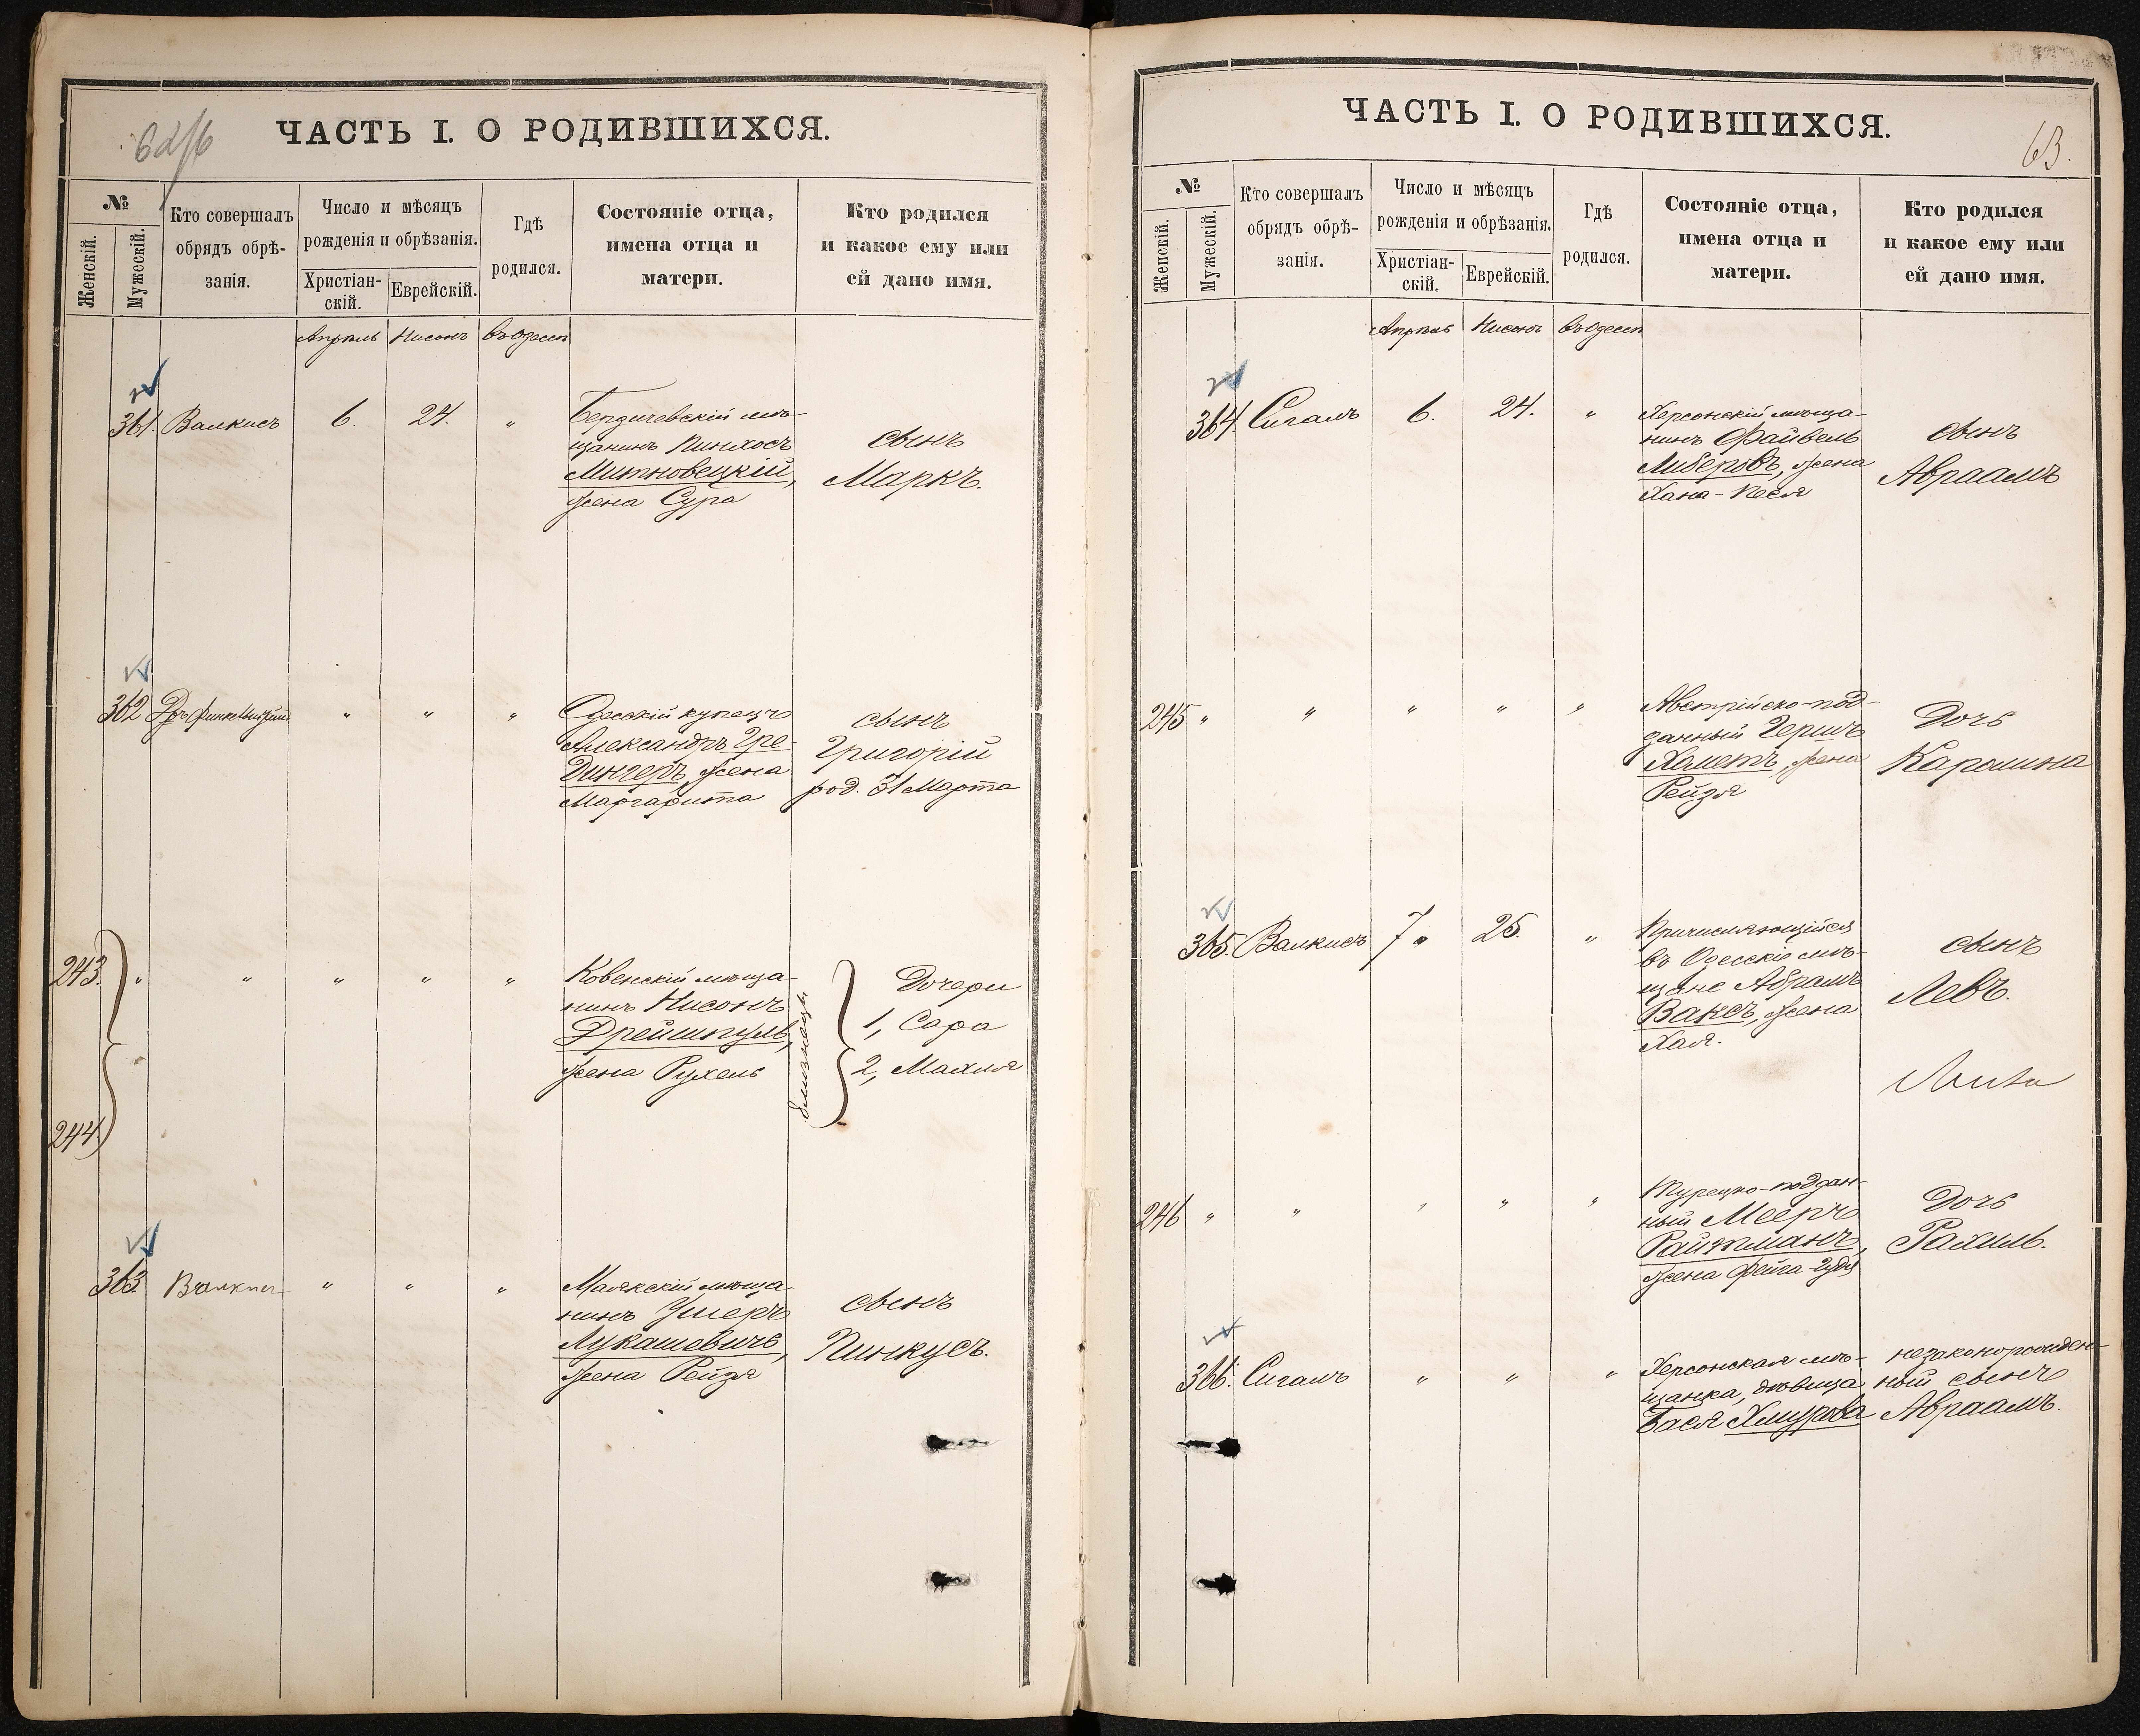 62/б
ЧАСТЬ I. О РОДИВШИХСЯ.
№
Женскій.
Мужескій.
Кто совершалъ
обрядъ обрѣ-
занія.
Число и мѣсяцъ
рожденія и обрѣзанія.
Христіан-
скій.
Еврейскій.
Гдѣ
родился.
Состояніе отца,
имена отца и
матери.
Кто родился
и какое ему или
ей дано имя.
Апрѣль Нисонъ въ Одессѣ
361. Валкисъ 6. 24. "
Бердичевскій мѣ-
щанинъ Пинхосъ
Митновецкій,
жена Сура
сынъ
Маркъ.
362 Дръ " " "
Одесскій купецъ
Александръ Гре-
дингеръ, жена
Маргарита
сынъ
Григорій
род. 31 Марта
243. " " " " "
244
Ковенскій мѣща-
нинъ Нисонъ
Дрейшпуль,
жена Рухель
близнецы
Дочери
1, Сара
2, Махля
363 Валкисъ " " "
Маякскій мѣща-
нинъ Ушеръ
Лукашевичъ,
жена Рейзя
сынъ
Пинкусъ.
ЧАСТЬ I. О РОДИВШИХСЯ.
63.
№
Женскій.
Мужескій.
Кто совершалъ
обрядъ обрѣ-
занія.
Число и мѣсяцъ
рожденія и обрѣзанія.
Христіан-
скій.
Еврейскій.
Гдѣ
родился.
Состояніе отца,
имена отца и
матери.
Кто родился
и какое ему или
ей дано имя.
Апрѣль Нисонъ въ Одессѣ
364. Сигалъ 6. 24. "
Херсонскій мѣща-
нинъ Файвель
Либеровъ, жена
Хана-Песя
сынъ
Авраамъ
245 " " " " "
Австрійско-под-
данный Гершъ
Хаметъ, жена
Рейзя
Дочь
Каролина
365. Валкисъ 7 " 25. "
Причисляющійся
въ Одесскіе мѣ-
щане Абрамъ
Ваксъ, жена
Хая.
сынъ
Левъ.
246 " " " " "
Турецко-поддан-
ный Мееръ
Райтманъ,
жена Фейга-Гудя
Дочь
Рахиль.
366. Сигалъ " " "
Херсонская мѣ-
щанка, дѣвица
Бася Хмурова
незаконорожден-
ный сынъ
Авраамъ.